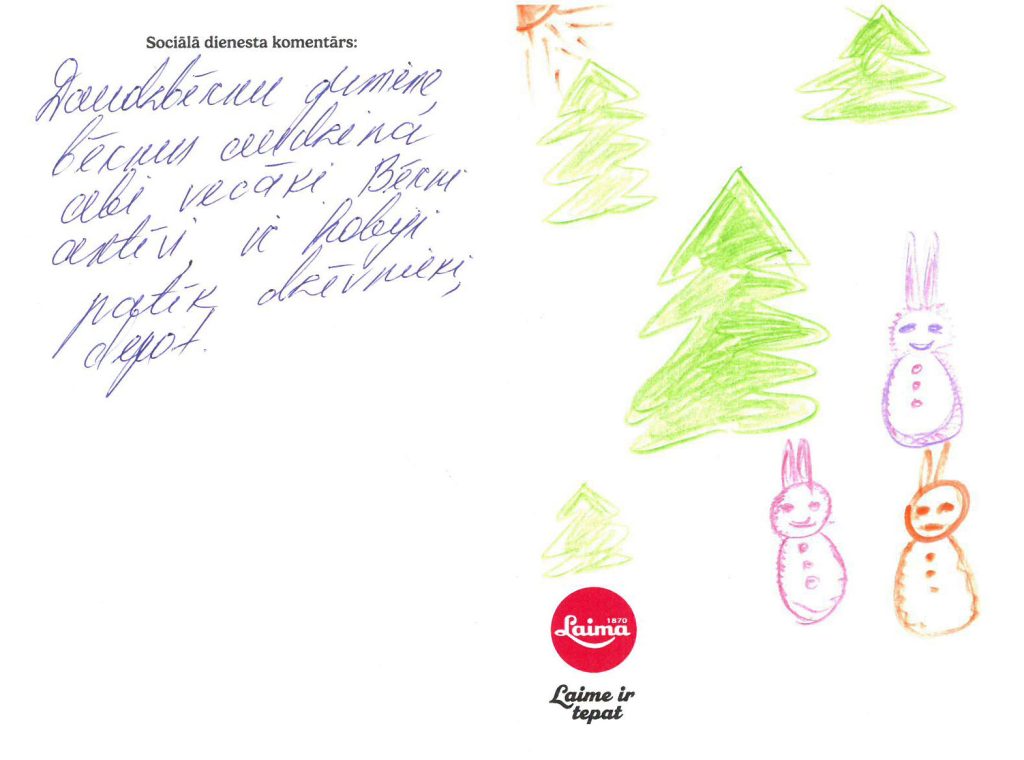 Sociālā dienesta komentārs:
Daudzbērnu ģimene,
bērnus audzina
abi vecāki Bērni
aktīvi, ir hobiji
patīk dzīvnieki,
dejot.
1870
Laima
Laime ir
tepat